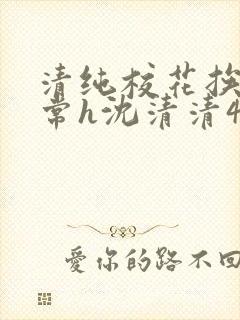 清纯校花挨
常h沈清清4
愛你的路不回